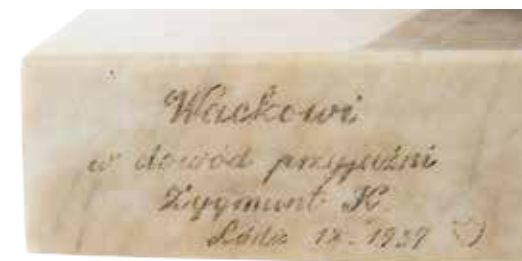 Wackowi
w dowód przyjaźni
Zygmunt K.
Łódź IX. 1939